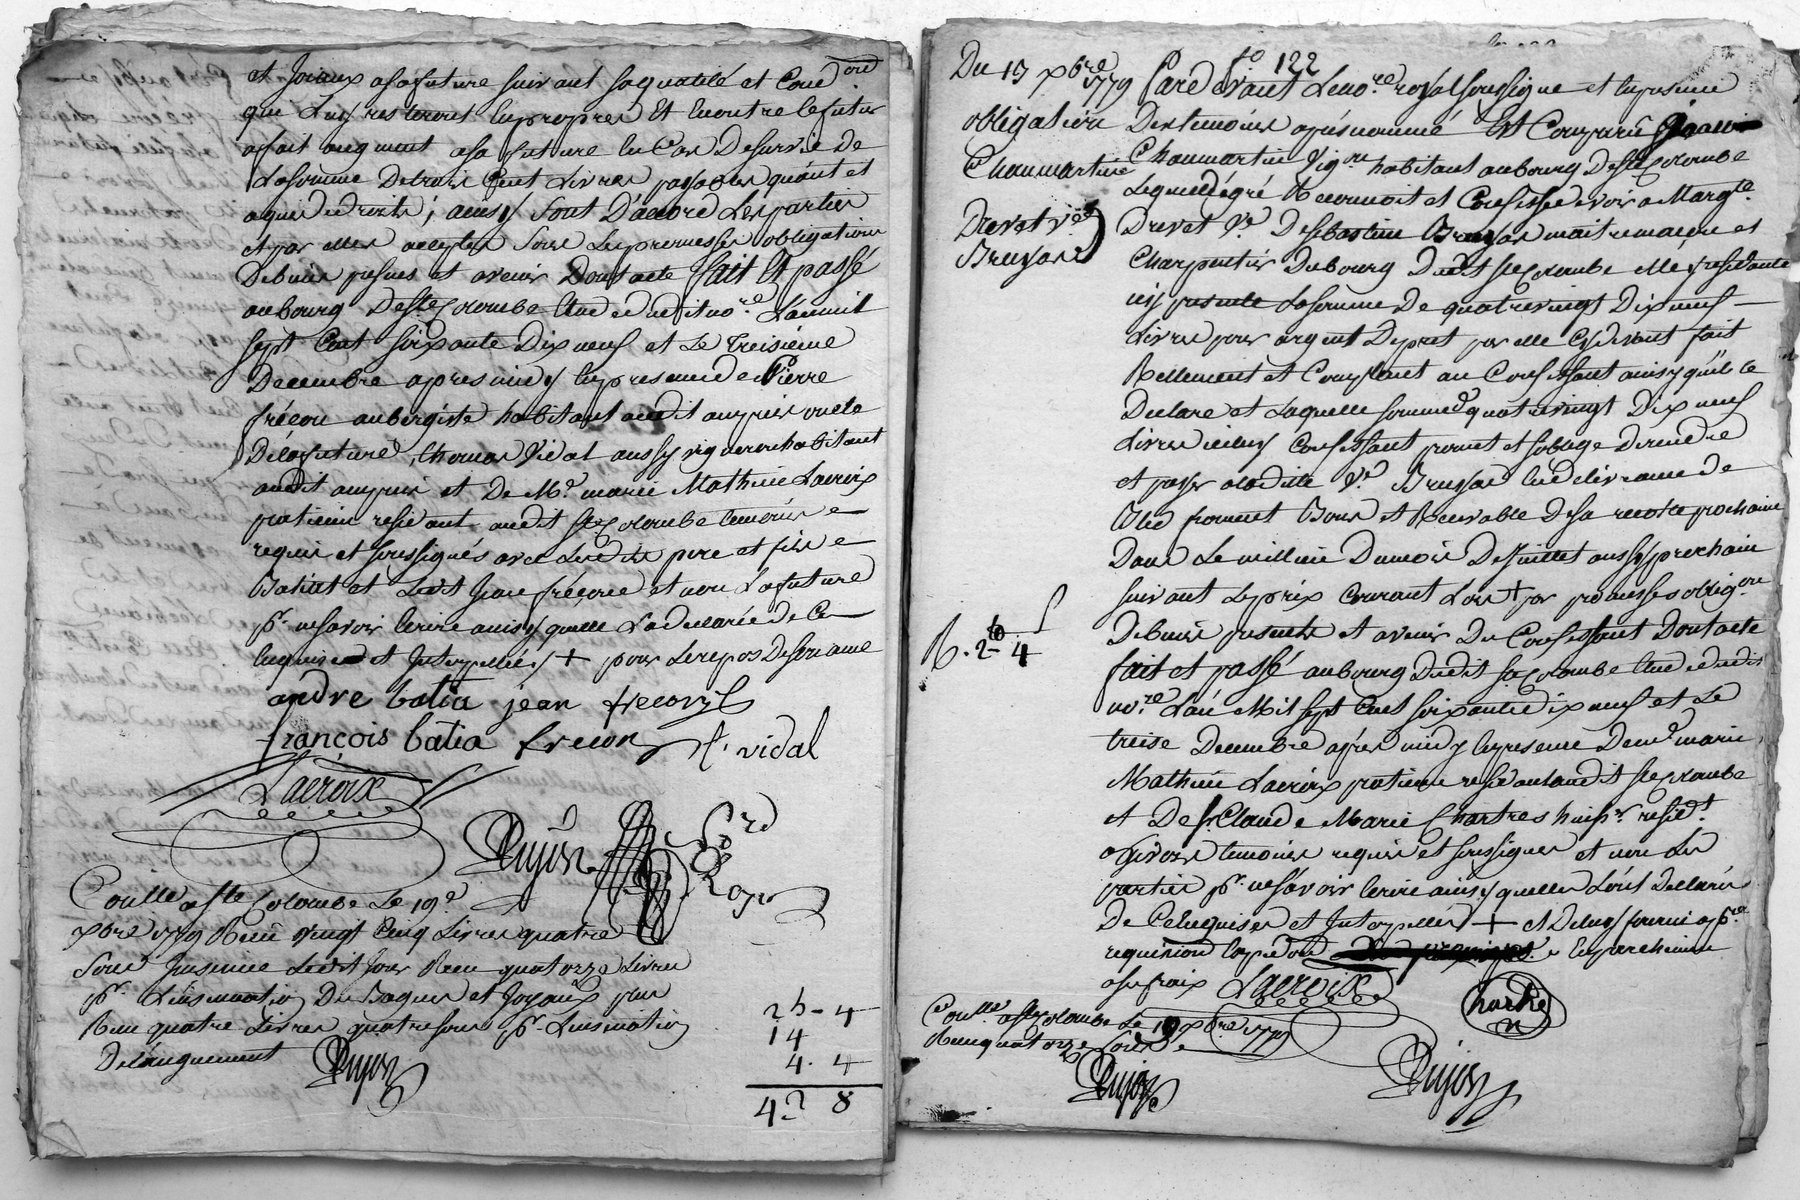 et Joiaux a sa future suivant sa qualité et Con.on
qui luy resteront en propres Et en outre le futur
a fait augment a sa future en Cas De survie de
La somme De trois Cent Livres payables quant et
a qui de droits; ainsy sont D'accord Les parties
et par elles acceptes sous Les promesses obligations
De biens presens et avenir Dont acte fait Et passé
au bourg De Ste Colombe Etude dudit no.re L'an mil
sept Cent soixante Dix neuf et Le treisieme
Decembre apres midy En presence de Pierre
frécon aubergiste habitant audit
De la future, thomas Vidal aussy vigneron habitant
audit et De M.e marie Mathieu Lacroix
praticien residant audit Ste Colombe temoins
requis et soussignés avec Lesdits pere et fils
Batiat et Ledit Jean frécon et non La future
p.r ne savoir écrire ainsy quelle L'a declarée de Ce
Enquise et Interpellée + pour Le repos De son ame
andre batia jean frecon
françois batia frecon t. vidal
Lacroix
Dujon no.re Roy.
Con.lle a Ste Colombe Le 19e
xbre 1779 Recu vingt Cinq Livres quatre
sous Insinué Ledit Jour Recu quatorze Livres
p.r L'insinuation Des Bagues et Joyaux plus
Recu quatre Livres quatre sous p.r L'insinuation
De L'augment Dujon
25 - 4
14
4 . 4
43 8
f.o 122
Du 13 xbre 1779
obligation
Chaumartin
Drevet v.e
Brussas
Pardevant Le no.re royal soussigné et En presence
Des temoins apres nommés Est Comparu
Chaumartin Vig.on habitant au bourg De Ste Colombe
Lequel de gré Reconnoit et Confesse devoir a Marg.te
Drevet V.e De Sebastien Brussas maitre maçon et
Charpentier Du bourg Dudit Ste Colombe elle y residante
icy presente La somme De quatre vingt Dix neuf
Livres pour argent De pret par elle Cy devant fait
Rellement et Comptant au Confessant ainsy quil Le
Declare et Laquelle somme de quatre vingt Dix neuf
Livres iceluy Confessant promet et s'oblige De rendre
et payer a Ladite V.e Brussas En délivrance de
Bled froment Bon et Recevable De sa recolte prochaine
Dans Le millieu Du mois De Juillet aussy prochain
suivant Le prix Courant Lors + par promesses oblig.on
De biens presents et avenir Du Confessant Dont acte
fait et passé au bourg Dudit Ste Colombe Etude dudit
no.re L'an Mil sept Cent soixante dix neuf et Le
treise Decembre après midy En presence De M.e marie
Mathieu Lacroix praticien residant audit Ste Colombe
et De S.r Claude Marie Chartres huis.r resid.t
a Givors temoins requis et soussignés et non Les
parties p.r ne sávoir écrire ainsy quelles L'ont Declaré
De Ce Enquises et Interpellées + et De Luy fournir a p.re
requisition Expedition En parchemin
a ses fraix Lacroix Chartre
R. 2 - 4
Con.lle a Ste Colombe Le 19 xbre 1779
Recu quatorze sous
Dujon Dujon